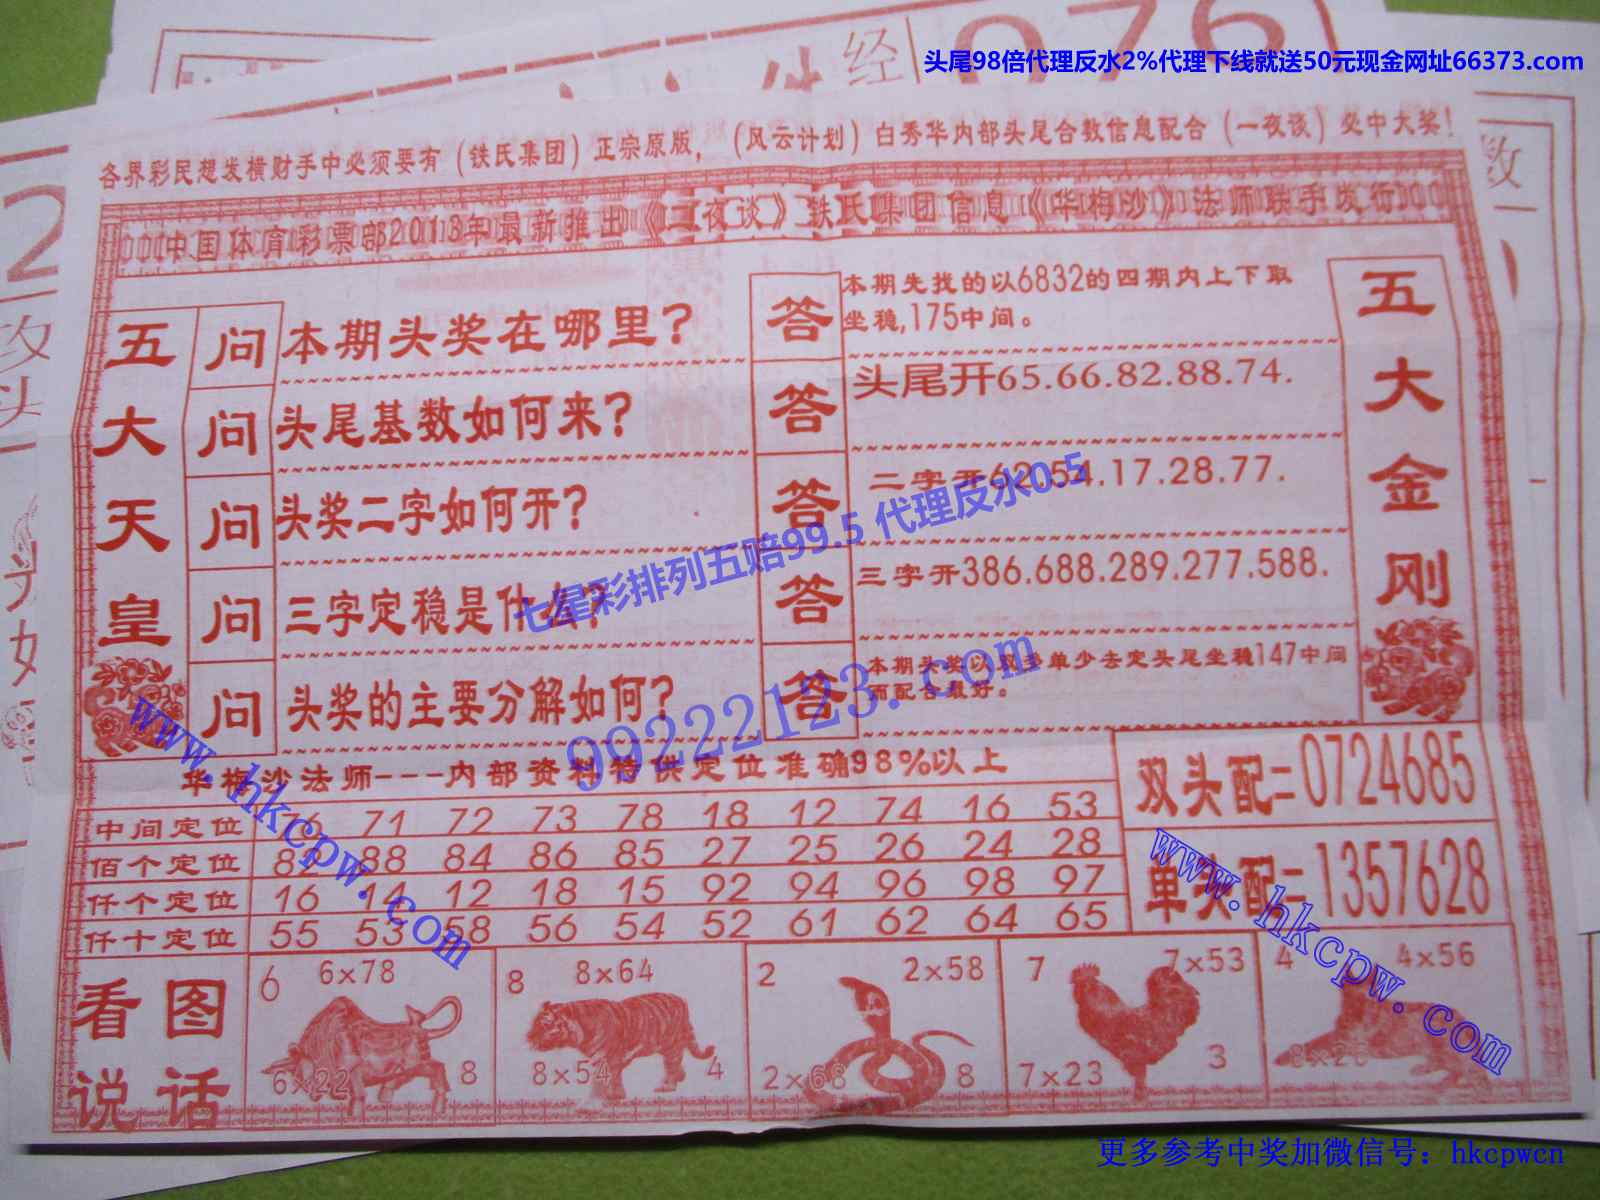 头尾98倍代理反水2%代理下线就送50元现金网址66373.com
各界彩民想发横财手中必须要有（铁氏集团）正宗原版，（风云计划）白秀华内部头尾合数信息配合（一夜谈）必中大奖！
中国体育彩票部2013年最新推出《一夜谈》铁氏集团信息《华梅沙》法师联手发行
五大天皇
问 本期头奖在哪里？
答 本期先找的以6832的四期内上下取
坐稳,175中间。
问 头尾基数如何来？
答 头尾开65.66.82.88.74.
问 头奖二字如何开？
答 二字开62.54.17.28.77.
问 三字定稳是什么？
答 三字开386.688.289.277.588.
问 头奖的主要分解如何？
答 本期头奖以双多单少去定头尾坐稳147中间
而配合最好。
五大金刚
七星彩排列五赔99.5 代理反水0.5
99222123.com
www.hkcpw.com
华梅沙法师---内部资料特供定位准确98%以上
中间定位 76 71 72 73 78 18 12 74 16 53
佰个定位 82 88 84 86 85 27 25 26 24 28
仟个定位 16 14 12 18 15 92 94 96 98 97
仟十定位 55 53 58 56 54 52 61 62 64 65
双头配二0724685
单头配二1357628
www.hkcpw.com
看图说话
6 6×78 6×22 8
8 8×64 8×54 4
2 2×58 2×68 8
7 7×53 7×23 3
4 4×56
更多参考中奖加微信号：hkcpwcn